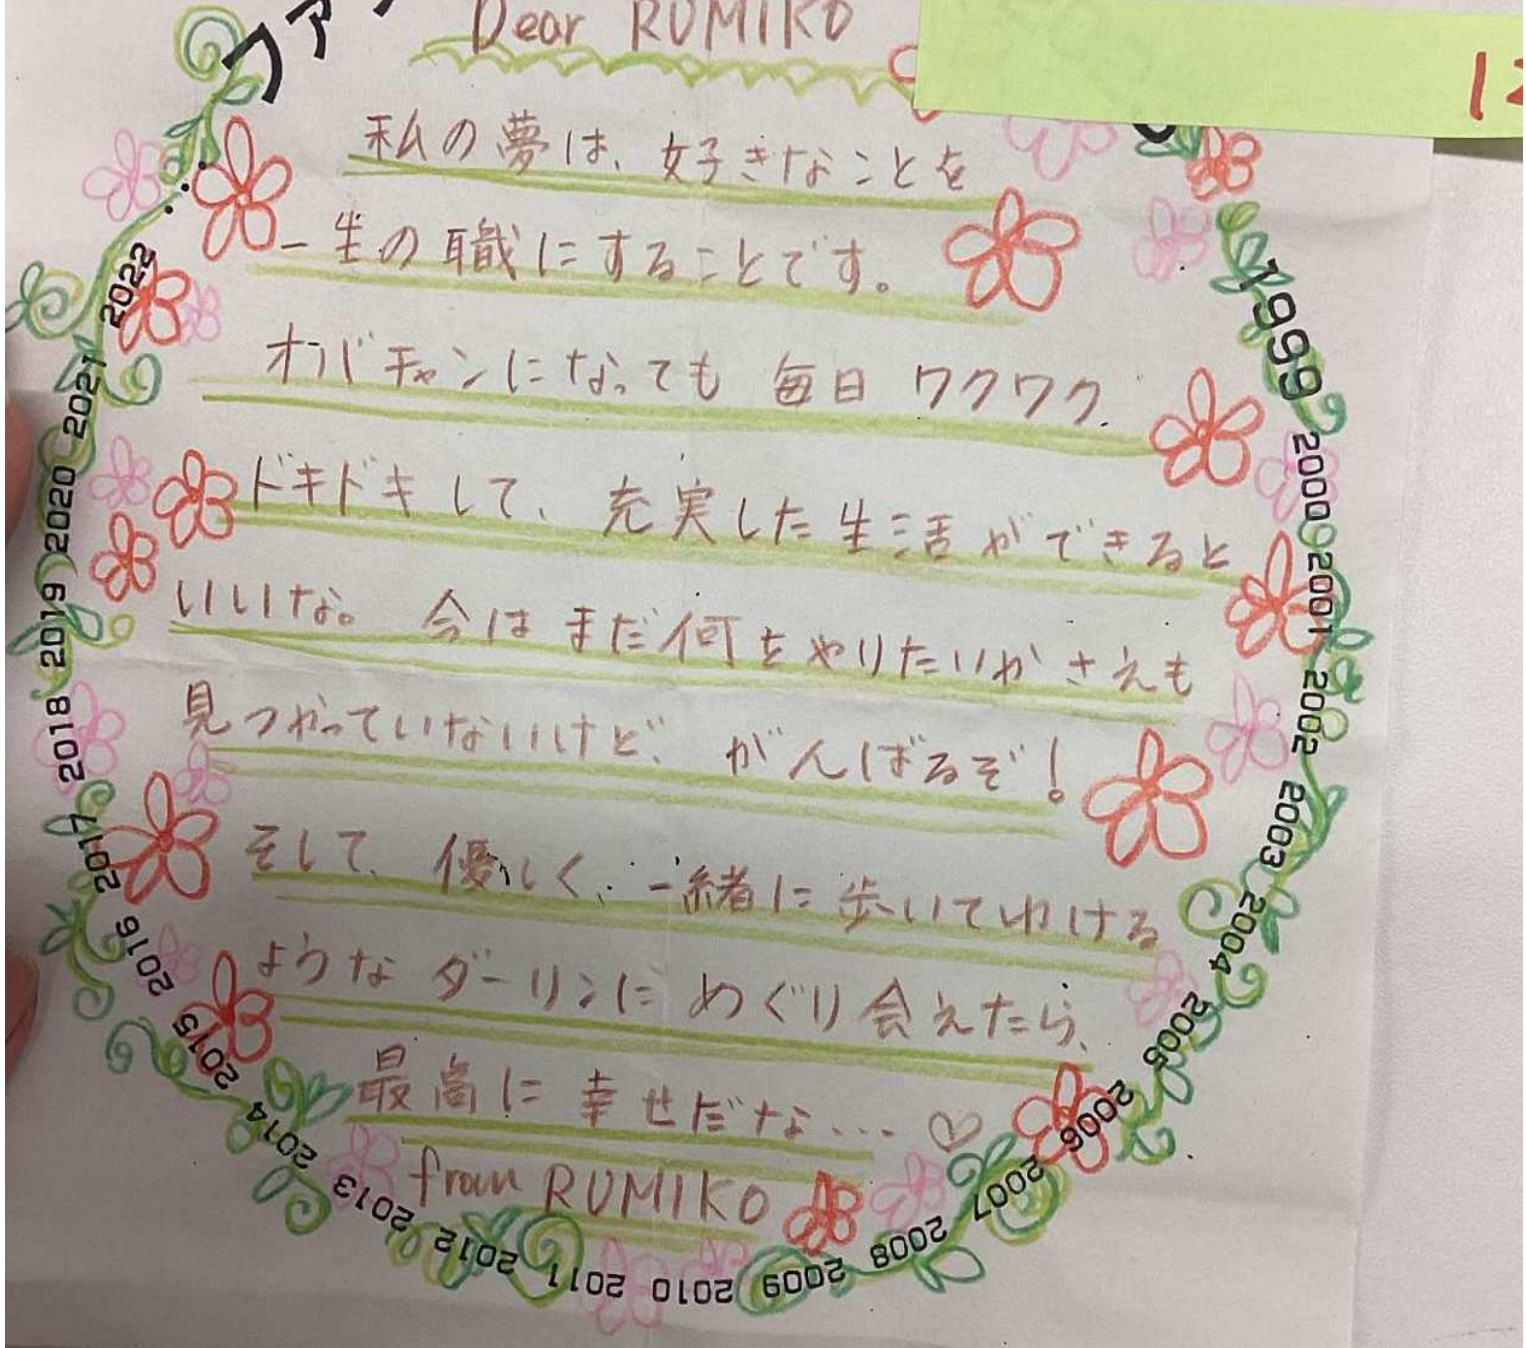 ファ
Dear RUMIKO
12
私の夢は、好きなことを
一生の職にすることです。
オバチャンになっても 毎日 ワクワク
ドキドキして、充実した生活ができると
いいな。 今はまだ何をやりたいかさえも
見つかっていないけど、がんばるぞ!
そして、優しく、一緒に歩いてゆける
ようなダーリンに めぐり会えたら、
最高に幸せだな… ♡
from RUMIKO
1999
2000
2001
2002
2003
2004
2005
2006
2007
2008
2009
2010
2011
2012
2013
2014
2015
2016
2017
2018
2019
2020
2021
2022